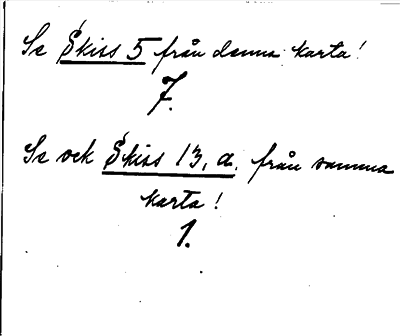 Se Skiss 5 från denna karta!
7.
Se ock Skiss 13, a. från samma
karta!
1.